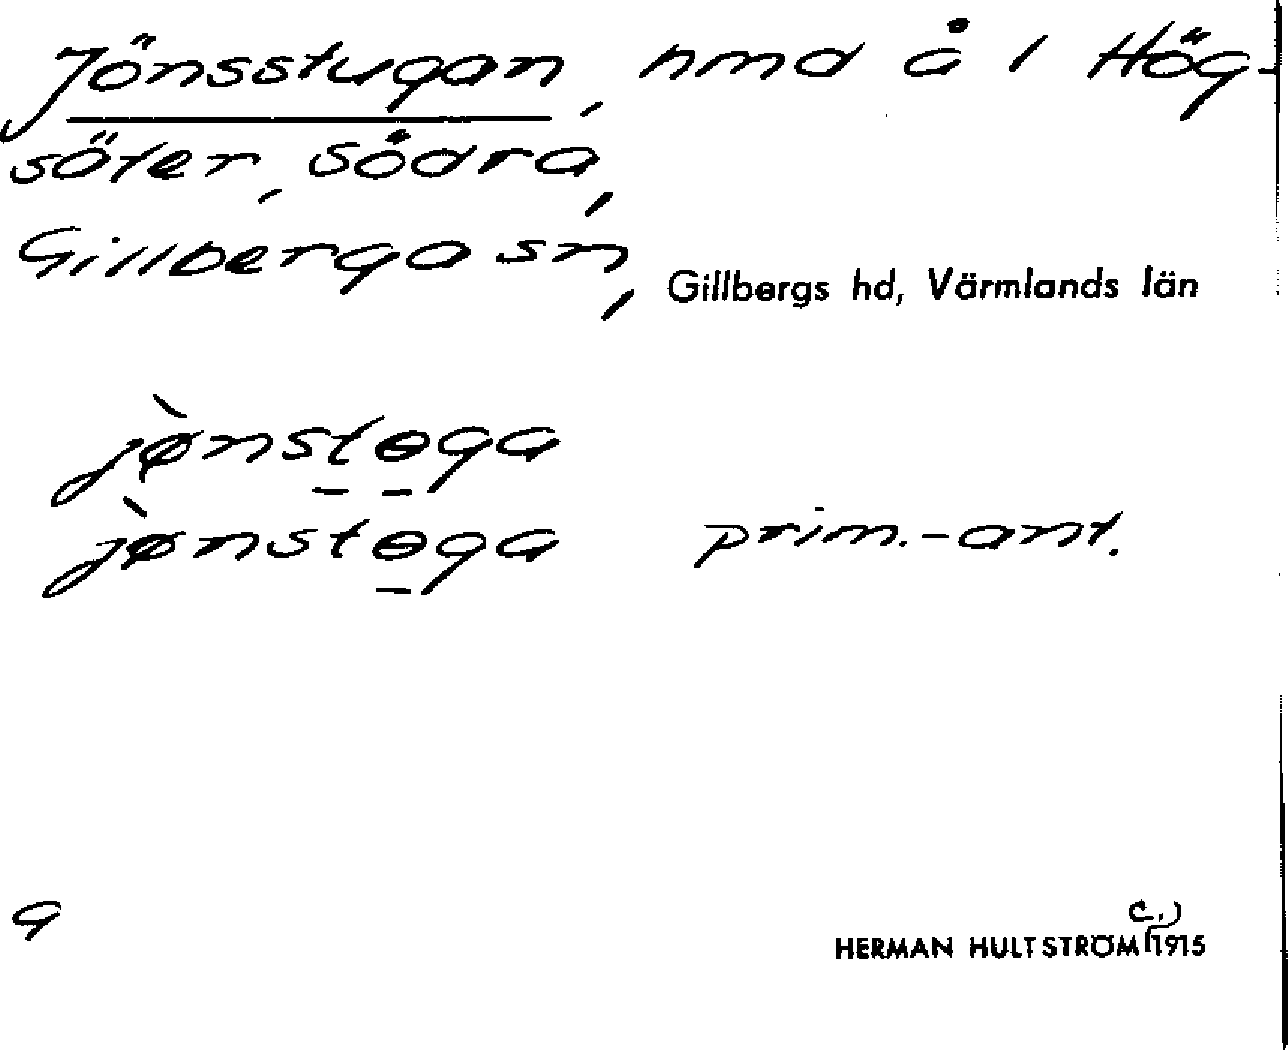 Jönsstugan, hmd å i Hög-
säter, Södra,
Gillberga sn, Gillbergs hd, Värmlands län
jø̀nstɵga
jø̀nstɵga prim.-ant.
9
HERMAN HULTSTRÖM (c.) 1915